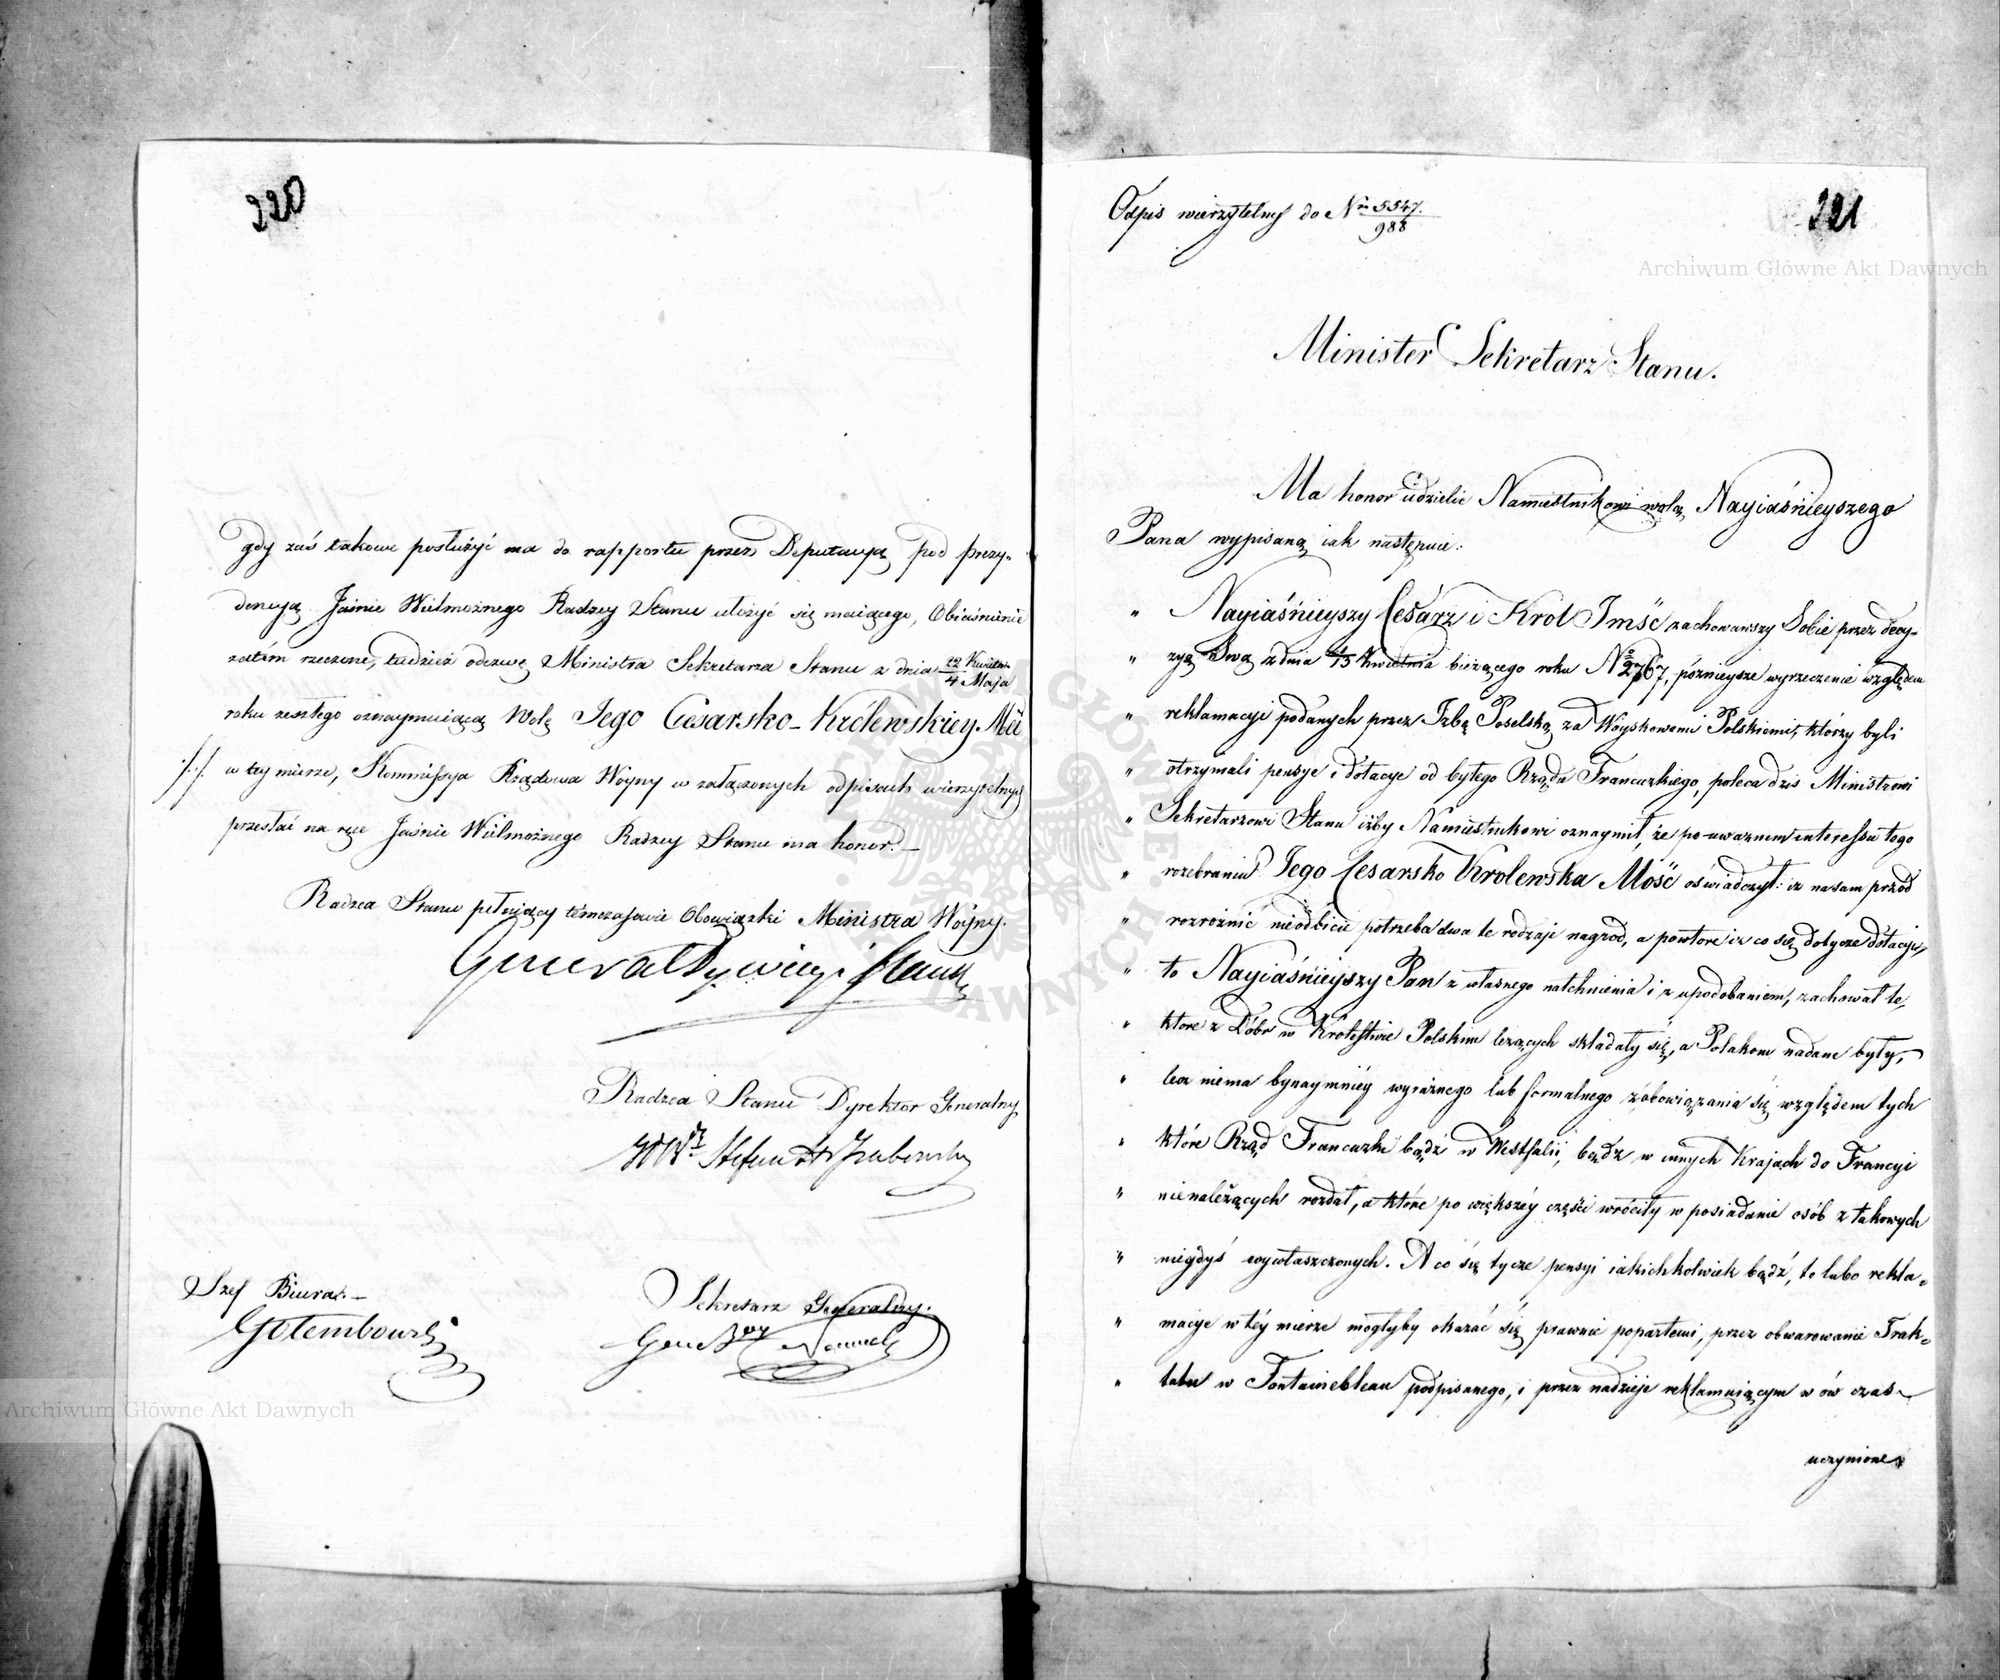 220
gdy zaś takowe posłużyć ma do rapportu przez Deputacyą pod prezy-
dencyą Jaśnie Wielmożnego Radzcy Stanu ułożyć się maiącego, Obiaśnienie
zatém rzeczone, tudzież odezwę Ministra Sekretarza Stanu z dnia 22 Kwietn. / 4 Maja
roku zeszłego oznaymuiącą Wolę Jego Cesarsko-Królewskiey Mci
·/·/· w tey mierze, Kommissya Rządowa Woyny w załączonych odpisach wierzytelnych
przesłać na ręce Jaśnie Wielmożnego Radzcy Stanu ma honor.—
Radzca Stanu pełniący tymczasowie Obowiązki Ministra Woyny.
Generał Dywizyi Hauk
Radzca Stanu Dyrektor Generalny
Stefan Grabowski
Szef Biura.—
Gołembowski
Sekretarz Generalny.
Gen
221
Odpis wierzytelny do Nru 5547. / 988
Minister Sekretarz Stanu.
Ma honor udzielić Namiestnikowi wolą Nayiaśnieyszego
Pana wypisaną iak następuie:
" Nayiaśnieyszy Cesarz i Król Jmść zachowawszy Sobie przez decy-
" zyą Swą z dnia 1/13 Kwietnia bieżącego roku No 2767, poznieysze wyrzeczenie względem
" reklamacyi podanych przez Izbę Poselską za Woyskowemi Polskiemi, którzy byli
" otrzymali pensye i dotacye od byłego Rządu Francuzkiego, poleca dziś Ministrowi
" Sekretarzowi Stanu iżby Namiestnikowi oznaymił, że po uważnem interessu tego
" rozebraniu Jego Cesarsko Krolewska Mość oświadczył: iż naSam przód
" rozrożnić nieodbicie potrzeba dwa te rodzaje nagrod, a powtore iż co się dotycze dotacyi,
" to Nayiaśnieyszy Pan z własnego natchnienia i z upodobaniem, zachował te,
" ktore z Dóbr w Królestwie Polskim leżących składały się, a Polakom nadane były,
" lecz niema bynaymniéy wyraźnego lub formalnego zobowiązania się względem tych
" które Rząd Francuzki bądź w Westfalii, bądź w innych Krajach do Francyi
" nienależących rozdał, a które po większéy części wróciły w posiadanie osób z takowych
" niegdyś wywłaszczonych. A co się tycze pensyi iakichkolwiek bądź, to lubo rekla-
" macye w téy mierze mogłyby okazać się prawnie popartemi, przez obwarowanie Trak-
" tatu w Fontainebleau podpisanego, i przez nadzieje reklamuiącym w ów czas
uczynione
Archiwum Główne Akt Dawnych
Archiwum Główne Akt Dawnych